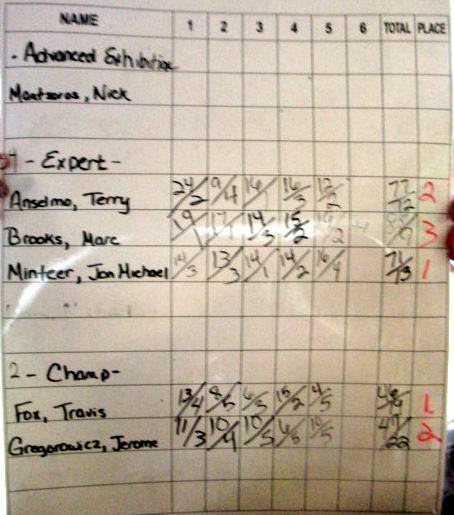 NAME 1 2 3 4 5 6 TOTAL PLACE
- Advanced Exhibition
Montsoros, Nick
- Expert -
Anselmo, Terry 24/2 9/4 16/1 16/3 12/2 77/12 2
Brooks, Marc 19/ 17/ 14/3 15/2 3
Minteer, Jon Michael 14/3 13/3 14/1 14/2 16/4 71/13 1
2 - Champ -
Fox, Travis 13/4 8/5 6/5 15/2 4/5 1
Gregorowicz, Jerome 11/3 10/4 10/5 6/5 10/5 47/22 2